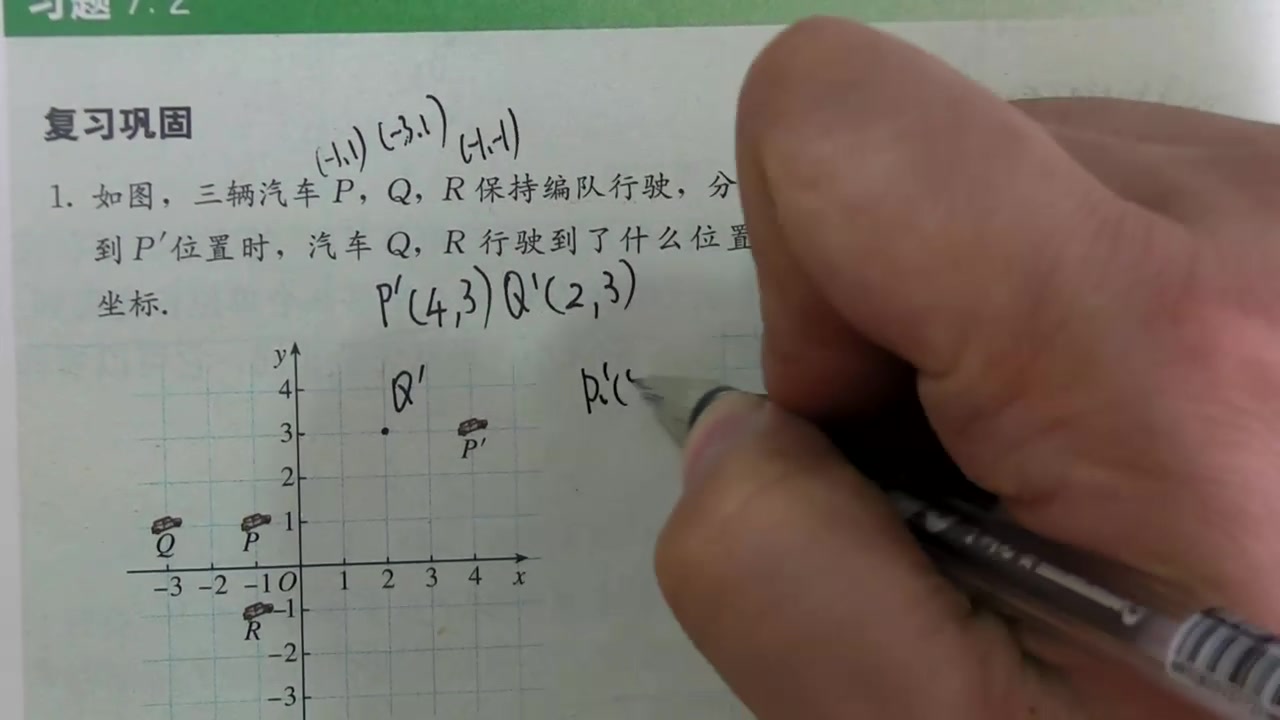 习题 7.2
复习巩固
(-1,1) (-3,1) (-1,-1)
1. 如图，三辆汽车 P，Q，R 保持编队行驶，分
到 P′位置时，汽车 Q，R 行驶到了什么位置
坐标.
P'(4,3) Q'(2,3)
y
4
Q'
3
P′
2
1
Q
P
-3 -2 -1 O 1 2 3 4 x
-1
R
-2
-3